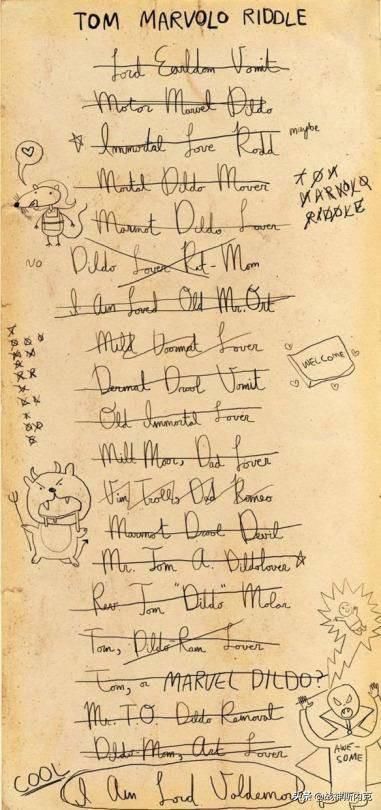 TOM MARVOLO RIDDLE
Lord Earldom Vomit
Motor Marvel Dildo
Immortal Love Rodd
maybe
Mortal Dildo Mover
TOM
MARVOLO
RIDDLE
Marmot Dildo Lover
NO
Dildo Lover Rat-Mom
I Am Loved Old Mr. Ort
Mild Doormat Lover
WELCOME
Dermal Drool Vomit
Old Immortal Lover
Mild Moor, Dad Lover
Vim Troll, Dad Romeo
Marmot Drool Devil
Mr. Tom A. Dildolover
Rev. Tom "Dildo" Molar
Tom, Dildo-Ram Lover
Tom, or MARVEL DILDO?
Mr. T.O. Dildo Removal
AWE-
SOME
Dildo Mom, Art Lover
COOL
I Am Lord Voldemort
头条 @战津斯内克